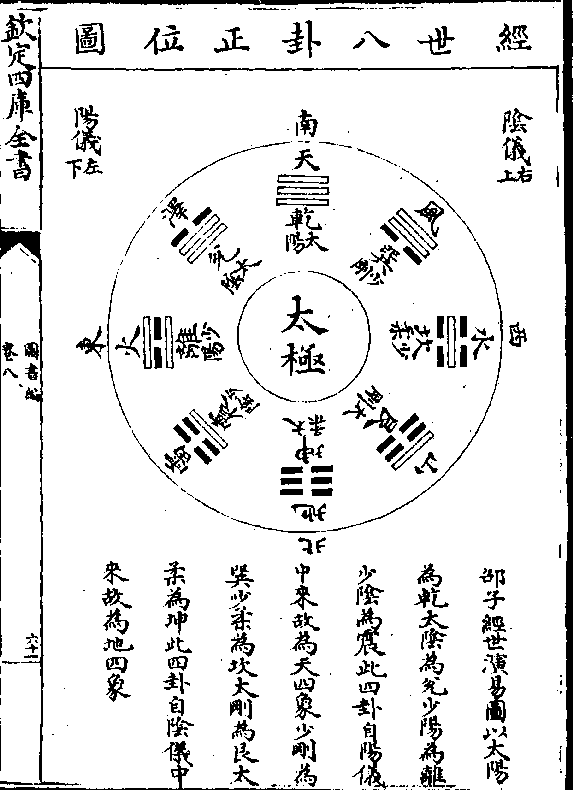 經世八卦正位圖
陰儀右上
陽儀左下
南
天
乾
太陽
風
巽
少剛
西
水
坎
少柔
山
艮
太剛
北
地
坤
太柔
雷
震
少陰
東
火
離
少陽
澤
兌
太陰
太極
邵子經世演易圖以太陽
為乾太陰為兌少陽為離
少陰為震此四卦自陽儀
中來故為天四象少剛為
巽少柔為坎太剛為艮太
柔為坤此四卦自陰儀中
來故為地四象
欽定四庫全書
圖書編
卷八